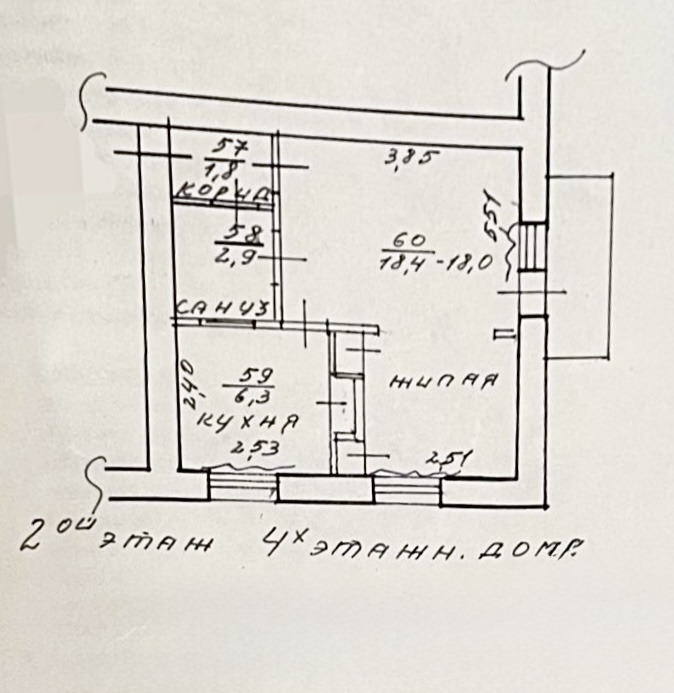 57
1,8
КОРИД
3,85
1,55
58
2,9
60
18,4-18,0
САНУЗ
59
6,3
2,40
КУХНЯ
ЖИЛАЯ
2,53
2,51
2ой этаж 4х этажн. дом.р.